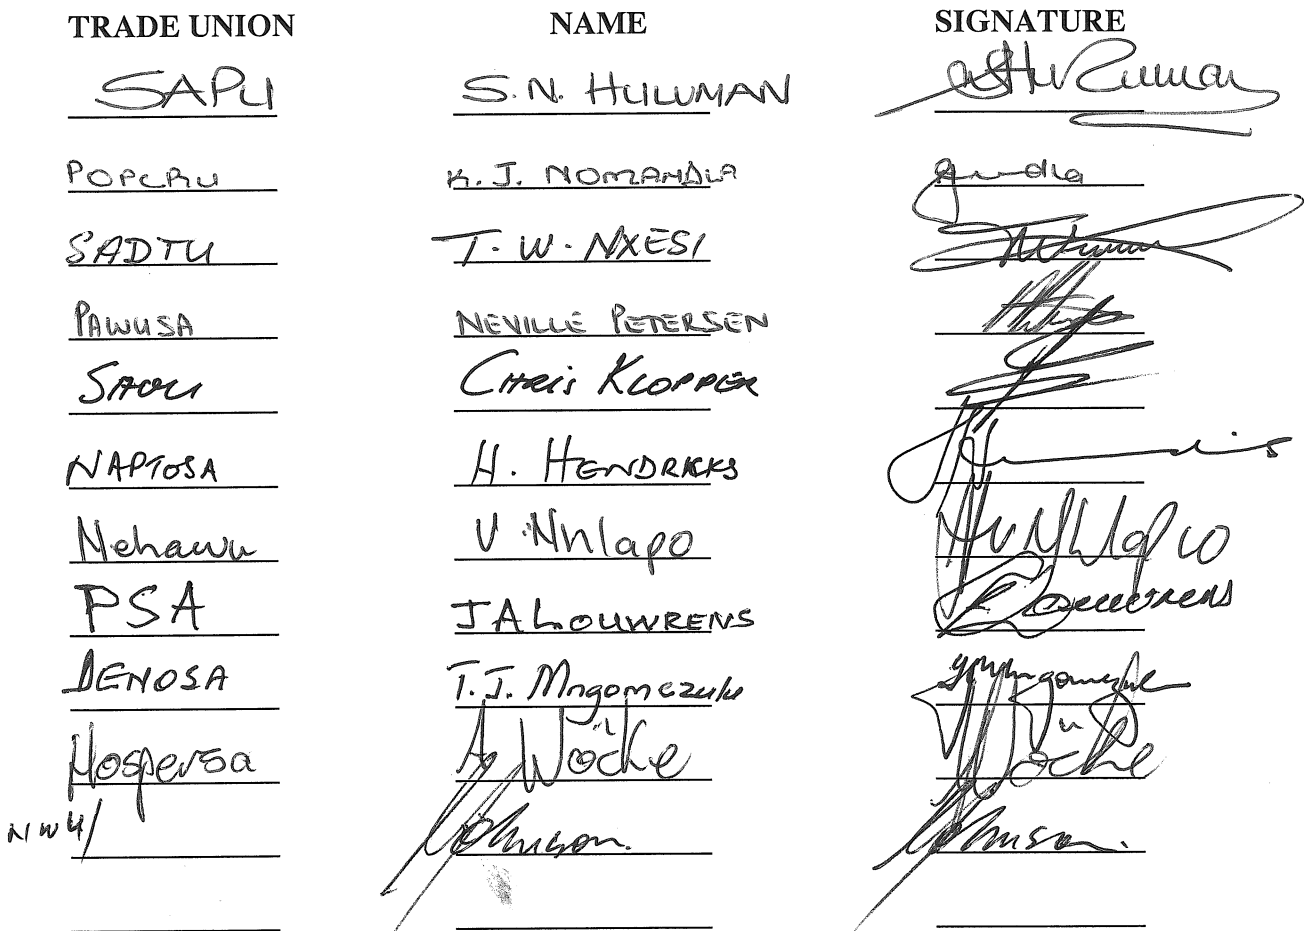 TRADE UNION NAME SIGNATURE
SAPU S.N. HULUMAN
POPCRU K.J. NOMANDLA
SADTU T.W. NXESI
PAWUSA NEVILLE PETERSEN
SAOU CHRIS KLOPPER
NAPTOSA H. HENDRICKS
Nehawu V Nhlapo V Nhlapo
PSA J A LOUWRENS Louwrens
DENOSA T.J. Mngomezulu
Hospersa A Wöcke Wöcke
NWU/ Johnson. Johnson.